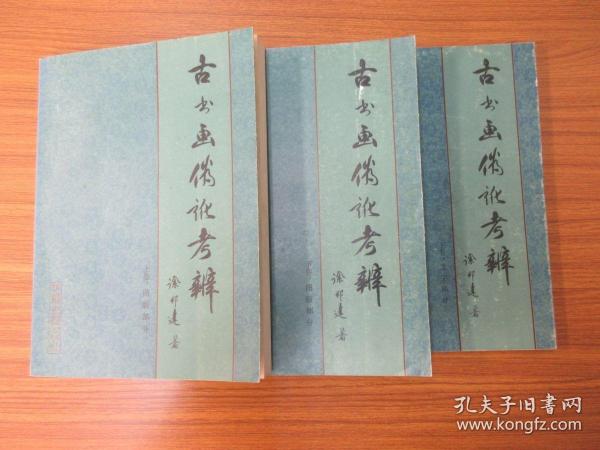 古书画伪讹考辨
徐邦达 著
古书画伪讹考辨
徐邦达 著
古书画伪讹考辨
徐邦达 著
孔夫子旧书网
www.kongfz.com